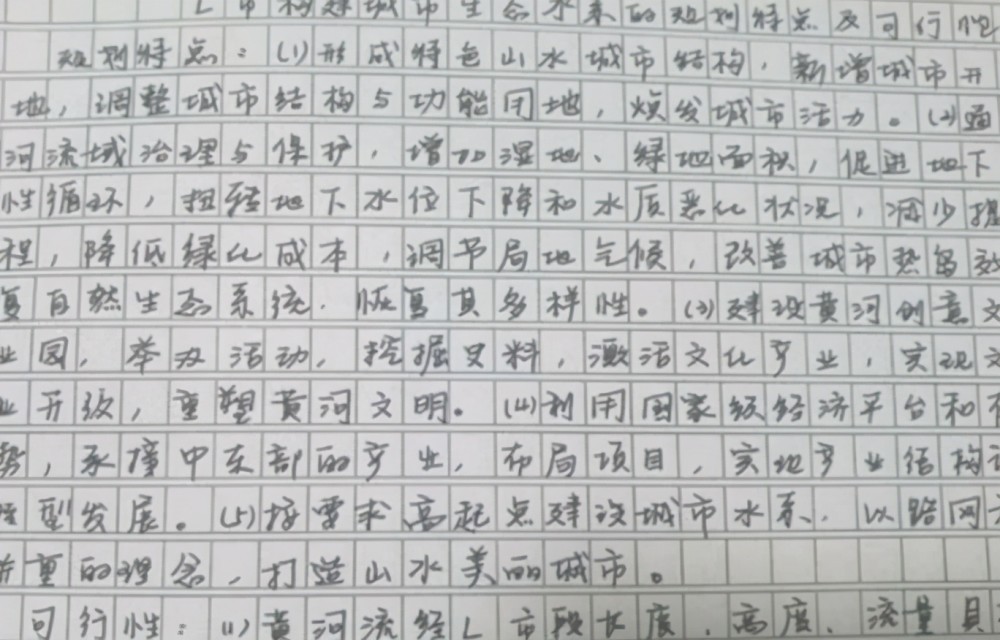 L市构建城市生态水系的规划特点及可行性
规划特点：(1)形成特色山水城市结构，新增城市开
地，调整城市结构与功能用地，焕发城市活力。(2)通
河流域治理与保护，增加湿地、绿地面积，促进地下
性循环，扭转地下水位下降和水质恶化状况，减少
程，降低绿化成本，调节局地气候，改善城市热岛效
复自然生态系统，恢复其多样性。(3)建设黄河创意文
业园，举办活动，挖掘史料，激活文化产业，实现文
业升级，重塑黄河文明。(4)利用国家级经济平台和
势，承接中东部的产业，布局项目，实地产业结构
型发展。(5)按要求高起点建设城市水系，以路网
并重的理念，打造山水美丽城市。
可行性：(1)黄河流经L市段长度、高度、流量具